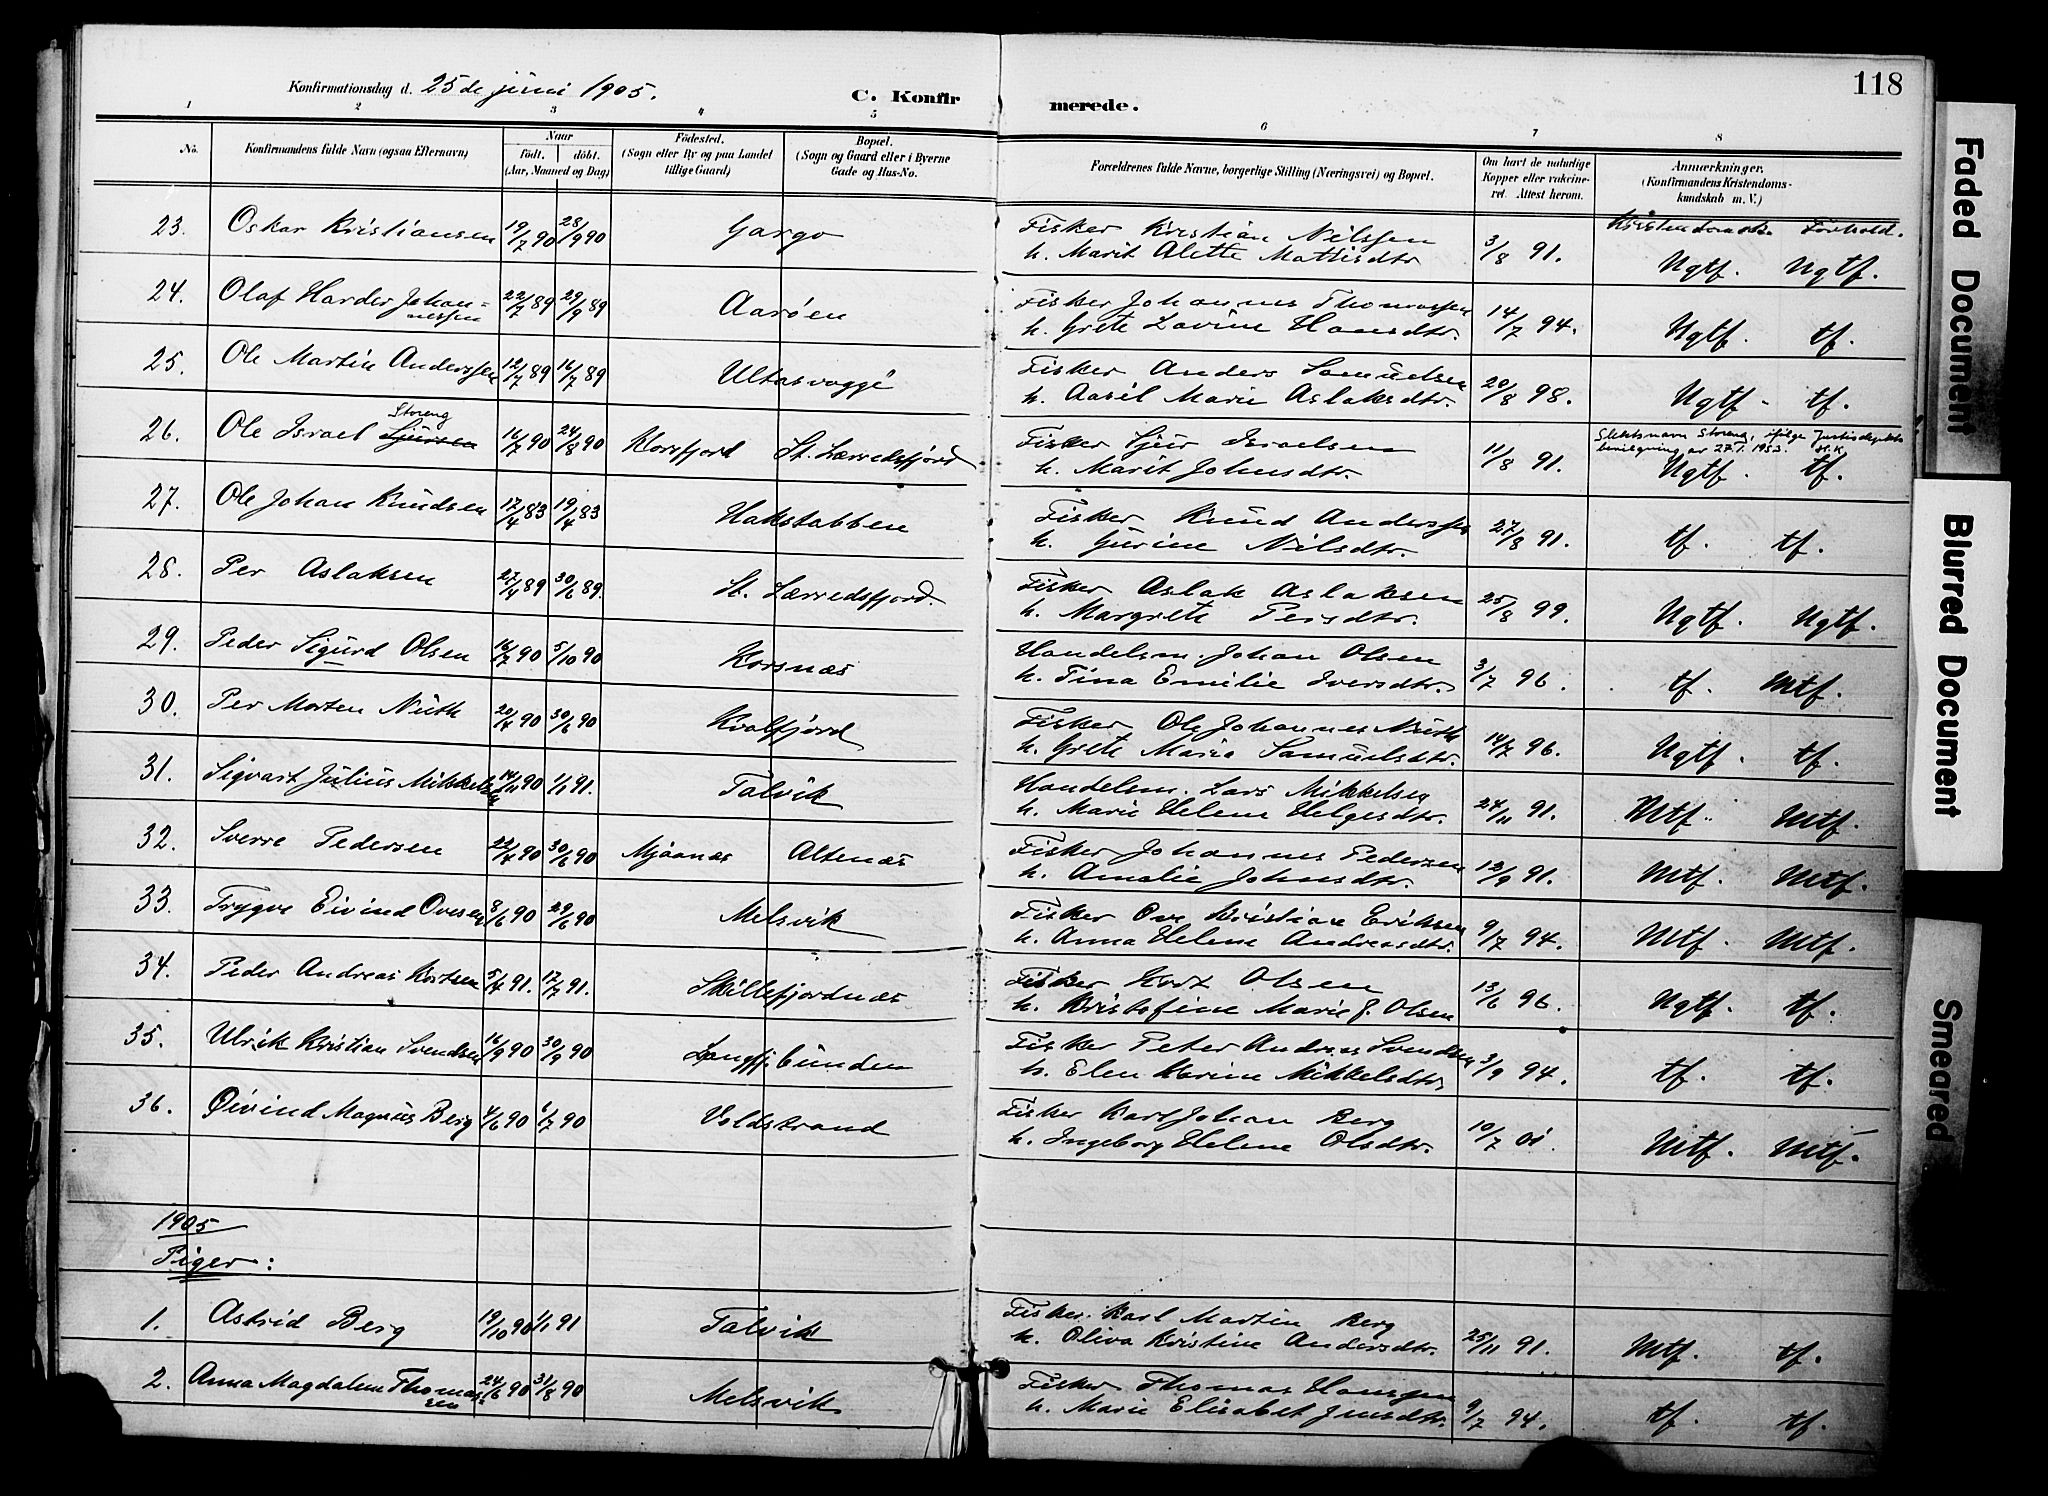 118
Konfirmationsdag d. 25de juni 1905.
C. Konfirmerede.
1 2 3 4 5 6 7 8
No.
Konfirmandens fulde Navn (ogsaa Efternavn)
Naar
födt. döbt.
(Aar, Maaned og Dag)
Födested.
(Sogn eller By og paa Landet
tillige Gaard)
Bopæl.
(Sogn og Gaard eller i Byerne
Gade og Hus-No.
Forældrenes fulde Navne, borgerlige Stilling (Næringsvei) og Bopæl.
Om havt de naturlige
Kopper eller vakcine-
ret. Attest herom.
Anmærkninger.
(Konfirmandens Kristendoms-
kundskab m. V.)
Forhold.
23. Oskar Kristiansen 19/7 90 28/9 90 Gargo Fisker Kristian Nilssen 3/8 91. Ngtf. Ngtf.
h. Marit Alette Mattisdtr
24. Olaf Harder Johan- 22/7 89 29/9 89 Aarøen Fisker Johannes Thomassen 14/7 94. Ngtf. tf.
nessen h. Grete Lovine Hansdtr.
25. Ole Martin Anderssen 12/7 89 16/7 89 Ultasvagge Fisker Anders Samuelsen 20/8 98. Ngtf. tf.
h. Aasil Marie Aslaksdtr.
Storeng
26. Ole Israel Sjursen 16/7 90 24/8 90 Korsfjord St. Lærredsfjord Fisker Sjur Israelsen 11/8 91. Ngtf. tf.
h. Marit Johnsdtr.
Slektsnavn Storeng, ifølge Justisdeptets
bevilgning av 27.1.1953. H.K.
27. Ole Johan Knudsen 17/4 83 19/4 83 Hakstabben Fisker Knud Anderssen 27/8 91. tf. tf.
h. Gurine Nilsdtr.
28. Per Aslaksen 27/4 89 30/6 89. St. Lærredsfjord. Fisker Aslak Aslaksen 25/8 99. Ngtf. Ngtf.
h. Margrete Persdtr.
29. Peder Sigurd Olsen 16/7 90 5/10 90 Korsnæs Handelsm. Johan Olsen 3/7 96. tf. Mtf.
h. Tina Emilie Iversdtr.
30. Per Morten Nuth 20/4 90 30/6 90 Kvalfjord Fisker Ole Johannes Nuth 14/7 96. Ngtf. tf.
h. Grete Maria Samuelsdtr.
31. Sigvart Julius Mikkelsen 14/11 90 1/1 91. Talvik Handelsm. Lars Mikkelsen 24/11 91. Mtf. Mtf.
h. Marie Helene Helgesdtr.
32. Sverre Pedersen 22/4 90 30/6 90 Mjaanæs Altenæs Fisker Johannes Pedersen 12/9 91. Mtf. Mtf.
h. Amalie Johnsdtr.
33. Trygve Eivind Ovesen 8/6 90 29/6 90 Melsvik Fisker Ove Kristian Eriksen 9/7 94. Mtf. Mtf.
h. Anna Helene Andreasdtr.
34. Peder Andreas Kortsen 5/4 91. 12/7 91. Skillefjordnæs Fisker Kort Olsen 13/6 96. Ngtf. tf.
h. Kristofine Marie J. Olsen
35. Ulrik Kristian Svendsen 16/9 90 30/9 90 Langfj.bunden Fisker Peter Andreas Svendsen 3/9 94. tf. tf.
h. Elen Karine Mikkelsdtr
36. Øivind Magnus Berg 4/6 90 6/7 90 Voldstrand Fisker Karl Johan Berg 10/7 01 Mtf. Mtf.
h. Ingeborg Helene Olsdtr.
1905
Piger:
1. Astrid Berg 19/10 90 1/1 91 Talvik Fisker Karl Martin Berg 25/11 91. Mtf. tf.
h. Oliva Kristine Andersdtr.
2. Anna Magdalene Thomas- 24/6 90 31/8 90 Melsvik Fisker Thomas Hansen 9/7 94. tf. tf.
sen h. Marie Elisabet Jensdtr.
Faded Document
Blurred Document
Smeared